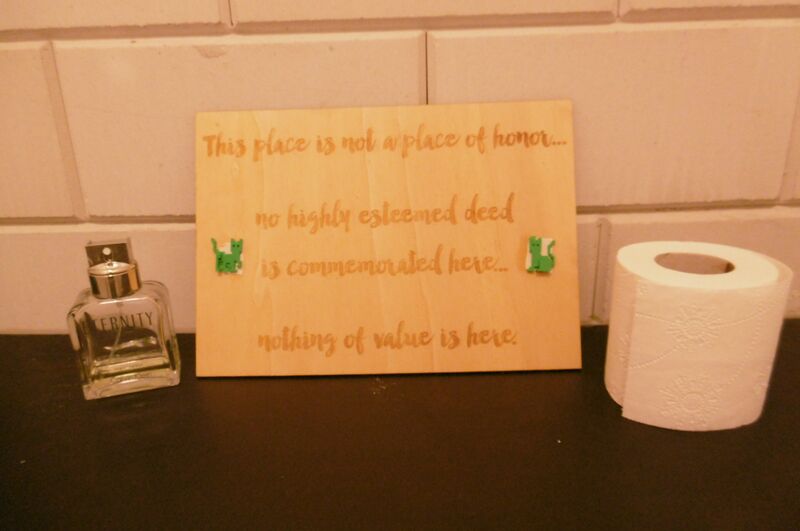 This place is not a place of honor...
no highly esteemed deed
is commemorated here...
nothing of value is here.
ETERNITY